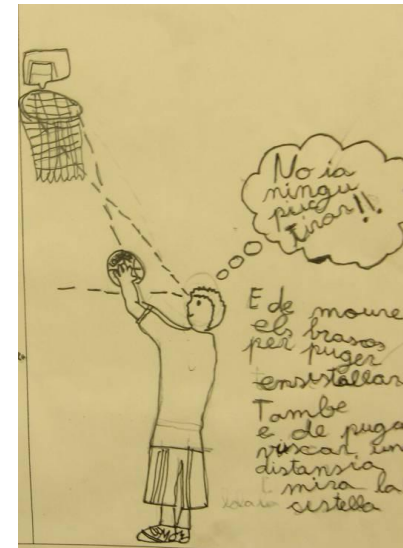 No ia
ningu
puc
tirar!!
E de moure
els brasos
per puger
ensistellar
Tambe
e de puga
viscar un
distansia
i mira la
cistella